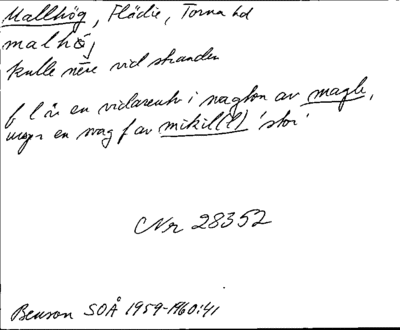 Mallhög, Flädie, Torna hd
malhöj
kulle nere vid stranden
f l är en vidareutv i nagton av magle,
en svag f av mikil(l) 'stor'
Nr 28352
Benson SOÅ 1959-1960:41